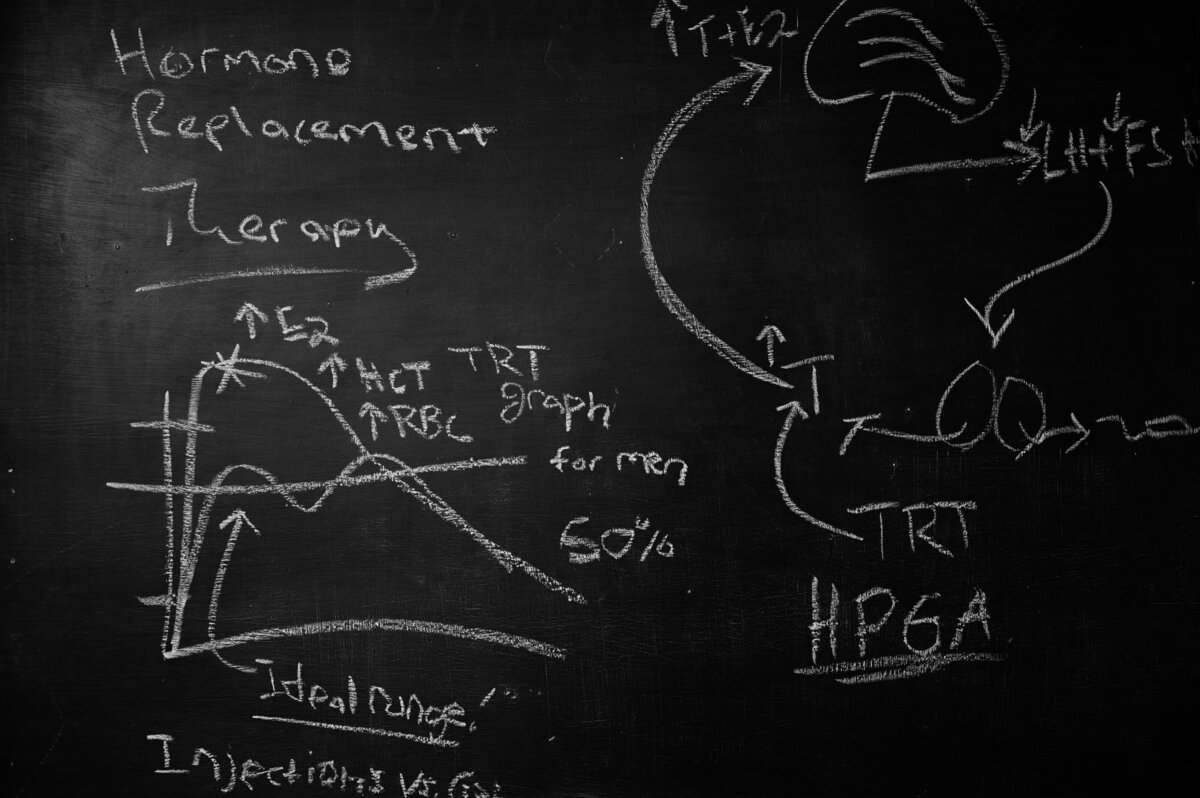 Hormone
Replacement
Therapy
↑ E2
↑ HCT
↑ RBC
TRT
graph
for men
50%
Ideal range!
Injections vs.
↑ T+E2
↓LH+↓FSH
↑ T
T
TRT
HPGA